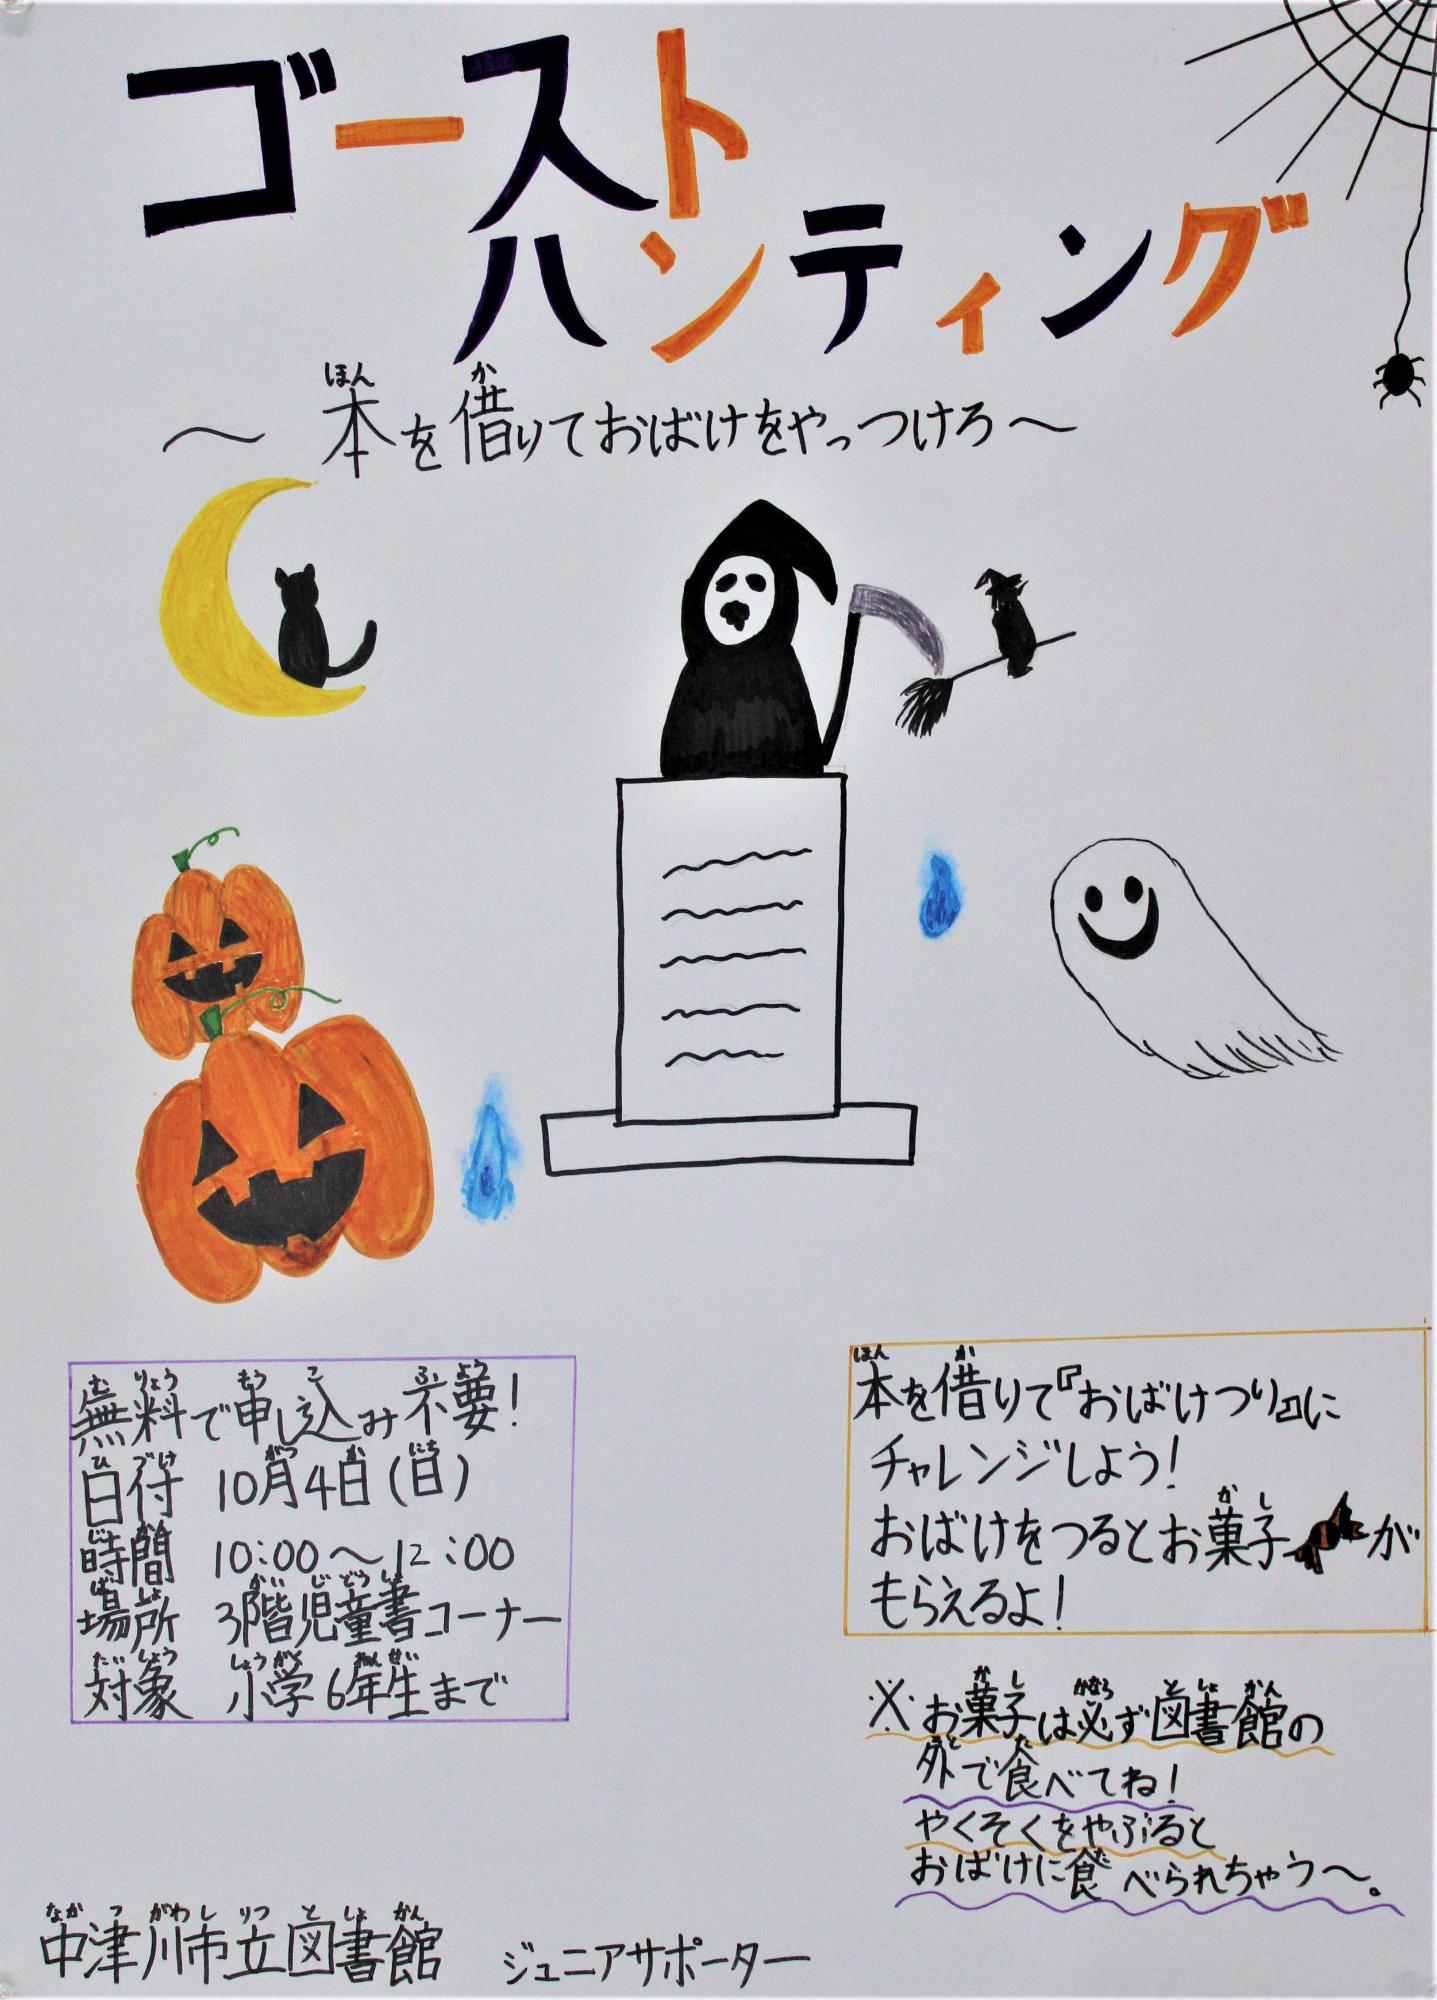 ゴースト
ハンティング
～本を借りておばけをやっつけろ～
無料で申し込み不要!
日付 10月4日(日)
時間 10:00～12:00
場所 3階児童書コーナー
対象 小学6年生まで
本を借りて『おばけつり』に
チャレンジしよう!
おばけをつるとお菓子が
もらえるよ!
※お菓子は必ず図書館の
外で食べてね!
やくそくをやぶると
おばけに食べられちゃう～。
中津川市立図書館 ジュニアサポーター